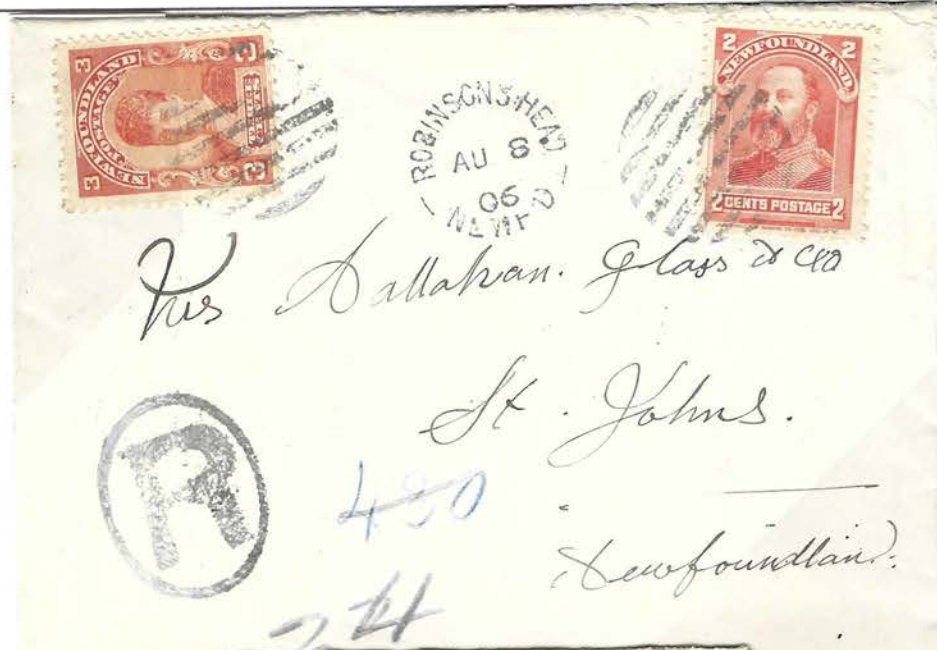 NEWFOUNDLAND
POSTAGE
3 3
3 THREE CENTS 3
ROBINSONS-HEAD
AU 8
06
NEWF'D
2 2
NEWFOUNDLAND
2 CENTS POSTAGE 2
Callahan. Glass & Co
St. Johns.
Newfoundland.
R
430